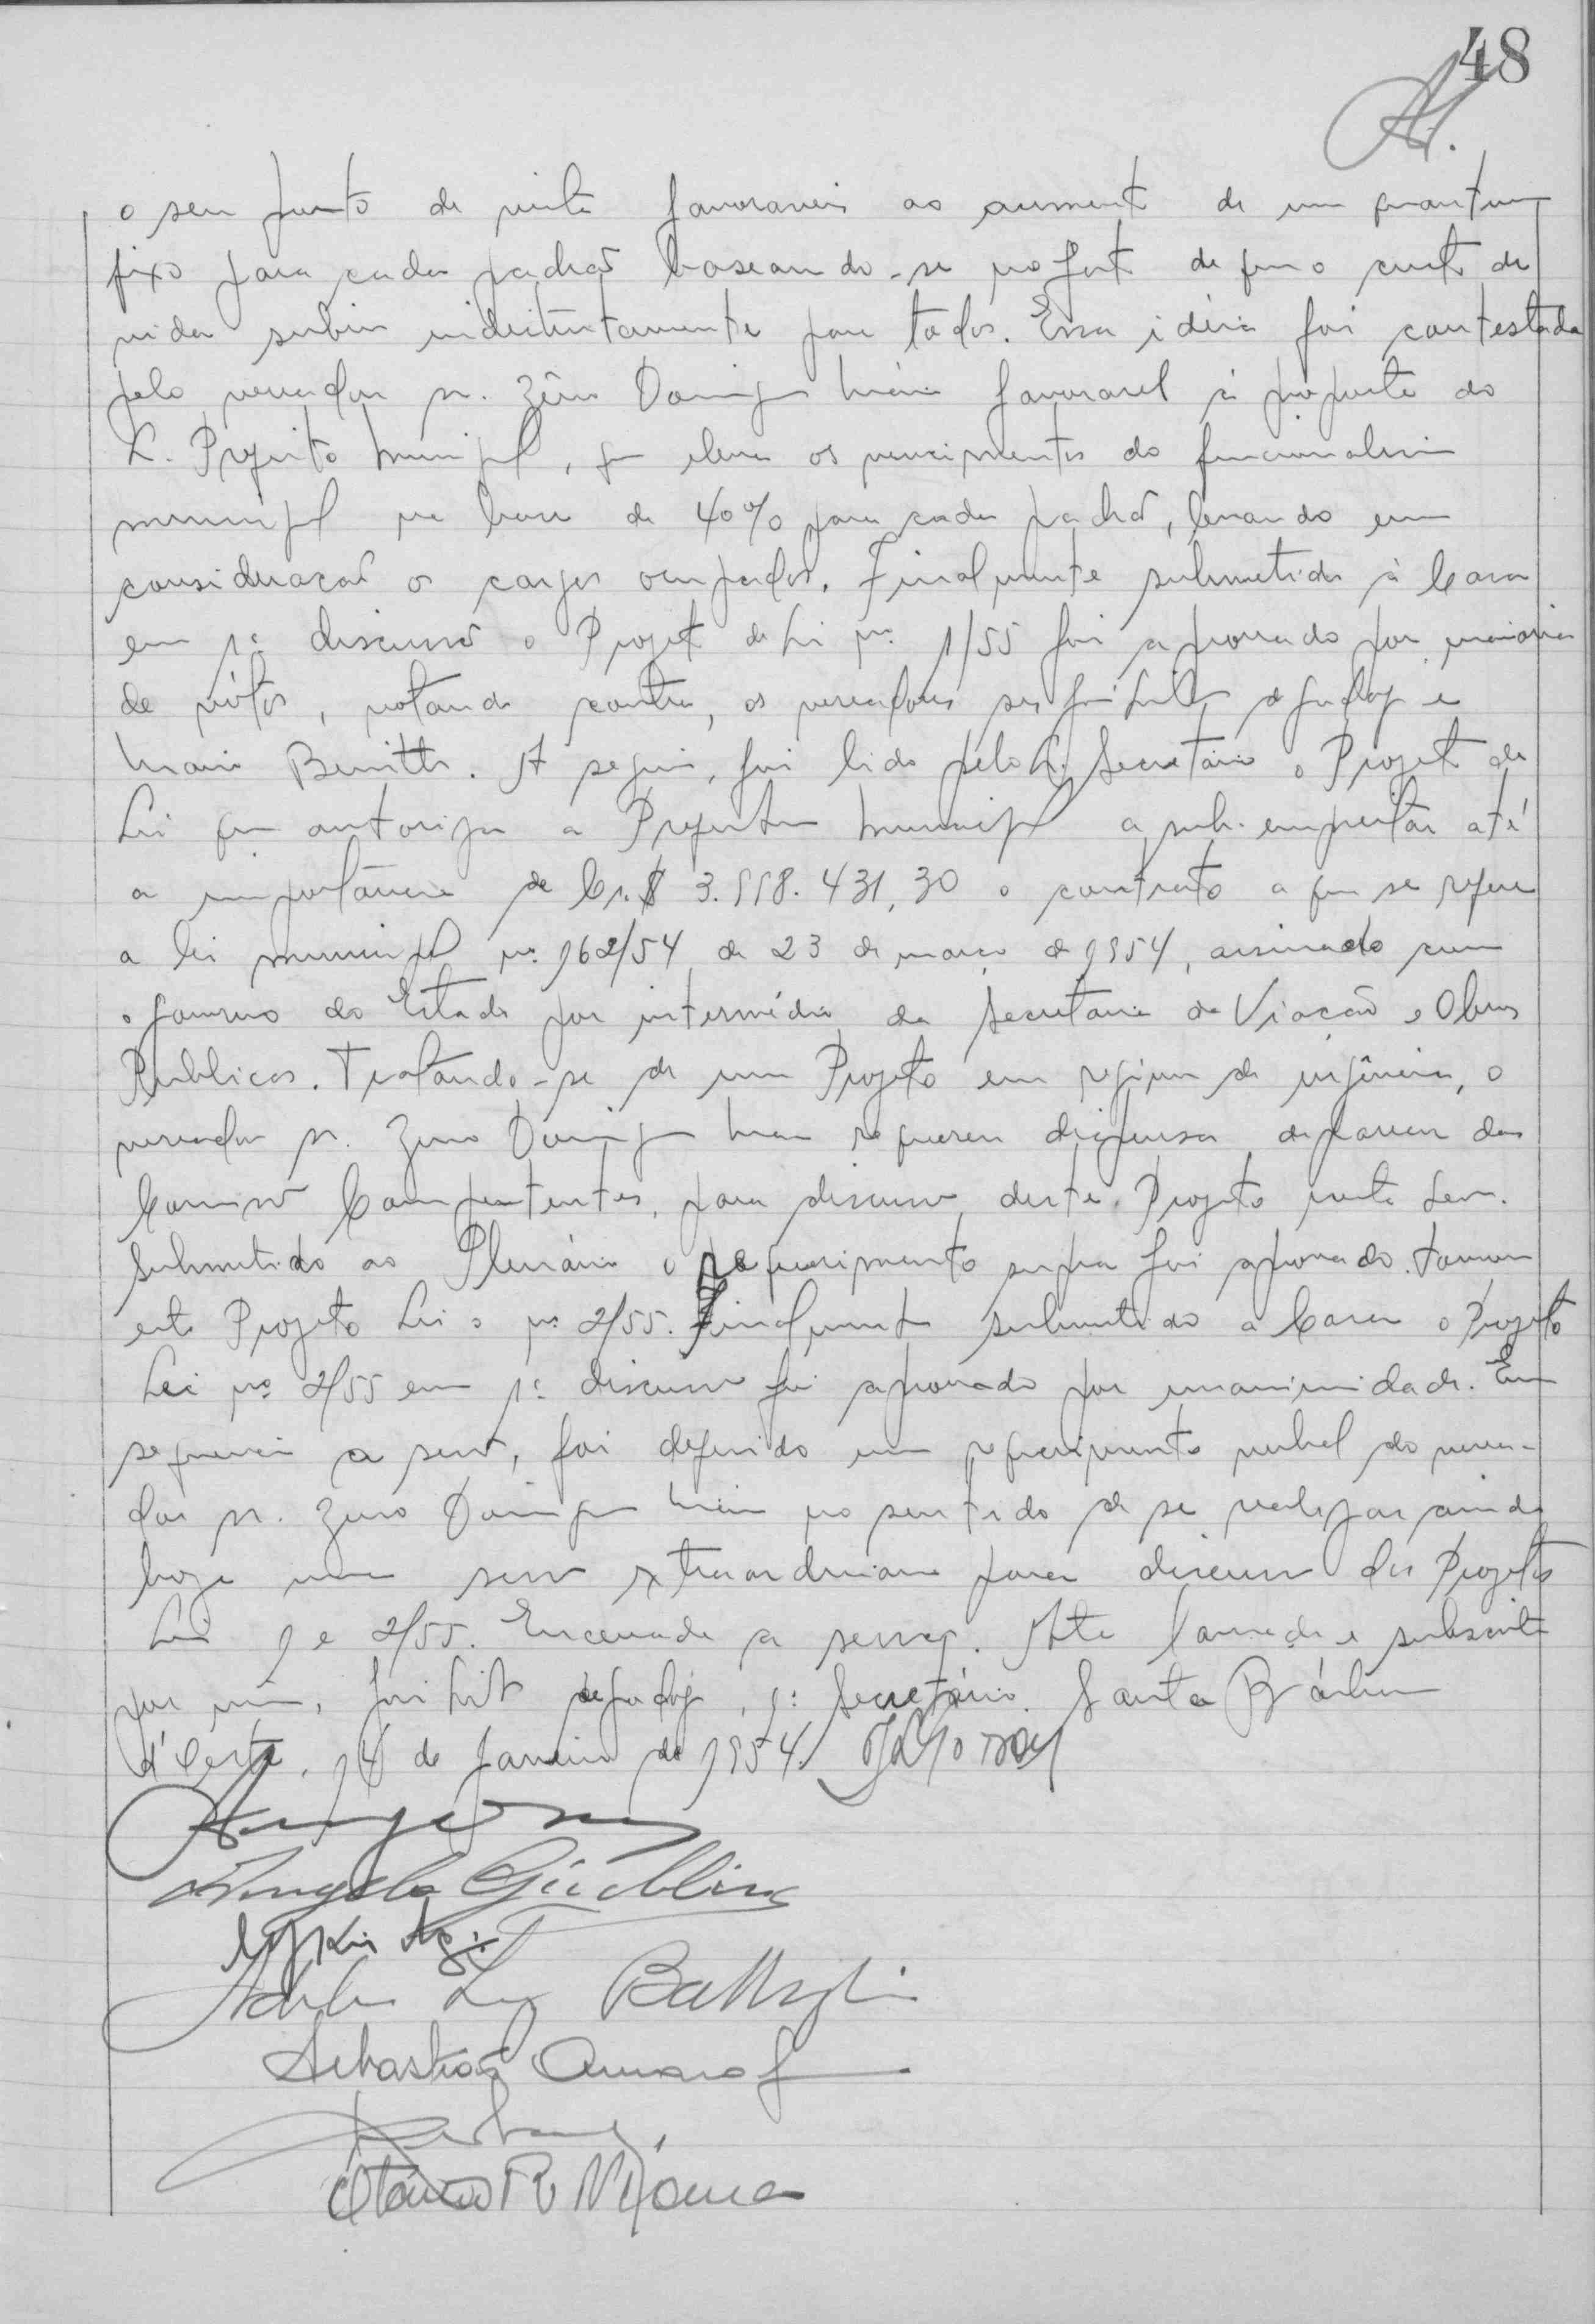 48
o seu ponto de vista favoraveis ao aumento de um quantum
fixo para cada padrão baseando-se no fato de que o custo de
vida subiu indistintamente para todos. Essa idéia foi contestada
pelo vereador sr. Zêno Domingos Maia favoravel à proposta do
S. Prefeito Municipal, que eleva os vencimentos do funcionalismo
municipal na base de 40% para cada padrão, levando em
consideração os cargos ocupados. Finalmente submetido à Casa
em 1ª discussão o Projeto de Lei nº 1/55 foi aprovado por maioria
de vótos, votando contra, os vereadores srs. de Godoy e
Mario Benitto. A seguir, foi lido pelo S. Secretário o Projeto de
Lei que autoriza a Prefeitura Municipal a sub-empreitar até
a importância de Cr.$ 3.558.431,30 o contrato a que se refere
a lei municipal nº 162/54 de 23 de março de 1954, assinado com
o governo do Estado por intermédio da Secretaria da Viação e Obras
Publicas. Tratando-se de um Projeto em regime de urgência, o
vereador sr. Zeno Domingos Maia requereu dispensa de parecer das
Comissões Competentes, para discussão deste Projeto nesta sessão.
Submetido ao Plenário o requerimento supra foi aprovado. Tomou
este Projeto Lei o nº 2/55. Finalmente submetido a Casa o Projeto
Lei nº 2/55 em 1ª discussão foi aprovado por unanimidade. Em
sequencia a sessão, foi deferido um requerimento verbal do verea-
dor sr. Zeno Domingos Maia no sentido de se realizar ainda
hoje uma sessão extraordinaria para discussão dos Projetos
Lei 1 e 2/55. Encerrada a sessão. Ata lavrada e subscrita
por mim, de Godoy, 1º Secretário. Santa Bárbara
d'Oeste, 14 de Janeiro de 1954.
Angelo Giubbina
Battaglia
Sebastião Amaral